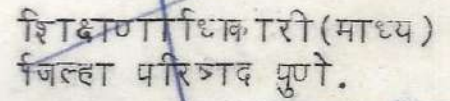 शिक्षणाधिकारी (माध्य)
जिल्हा परिषद पुणे.